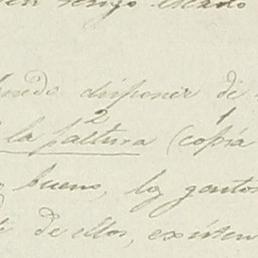 tengo estado
disponer de
la faltura (copia
bueno, los gastos
de ellos, existen